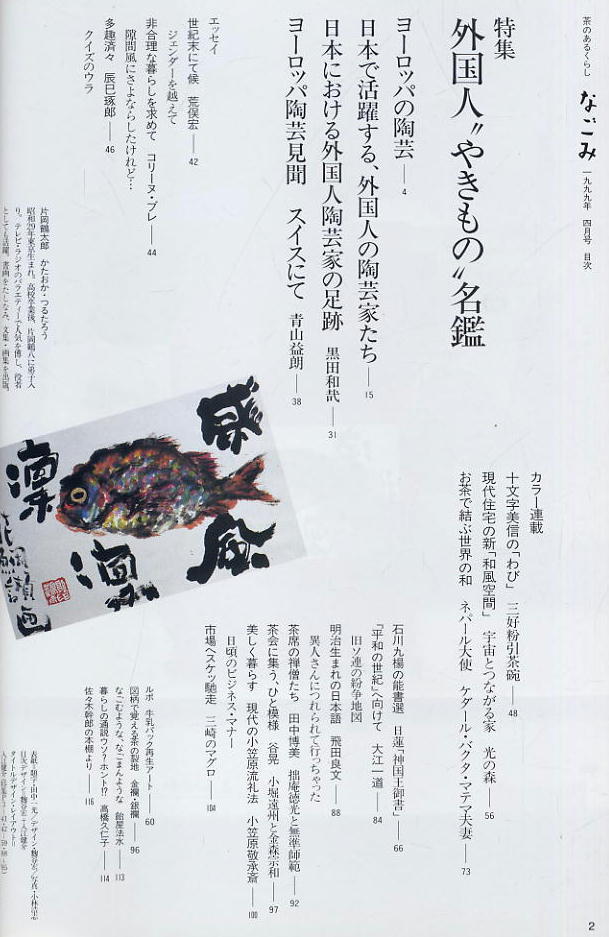 茶のあるくらし なごみ 一九九九年 四月号 目次
特集
外国人〝やきもの〟名鑑
ヨーロッパの陶芸——4
日本で活躍する、外国人の陶芸家たち——15
日本における外国人陶芸家の足跡 黒田和哉——31
ヨーロッパ陶芸見聞 スイスにて 青山益朗——38
エッセイ
世紀末にて候 荒俣宏——42
ジェンダーを越えて
非合理な暮らしを求めて コリーヌ・ブレ——44
隙間風にさよならしたけれど…
多趣済々 辰巳琢郎——46
クイズのウラ
カラー連載
十文字美信の「わび」 三好粉引茶碗——48
現代住宅の新「和風空間」 宇宙とつながる家 光の森——56
お茶で結ぶ世界の和 ネパール大使 ケダール・バクタ・マテマ夫妻——73
石川九楊の能書選 日蓮「神国王御書」——66
「平和の世紀」へ向けて 大江一道——84
旧ソ連の紛争地図
明治生まれの日本語 飛田良文——88
異人さんにつれられて行っちゃった
茶席の禅僧たち 田中博美 拙庵徳光と無準師範——92
茶会に集う、ひと模様 谷晃 小堀遠州と金森宗和——97
美しく暮らす 現代の小笠原流礼法 小笠原敬承斎——100
日頃のビジネス・マナー
市場へスケッ馳走 三崎のマグロ——104
ルポ 牛乳パック再生アート——60
図柄で覚える茶の裂地 金襴・銀襴——96
なごむような、なごまんような 飴屋法水——113
暮らしの通説ウソ?ホント!? 高橋久仁子——114
佐々木幹郎の本棚より——116
片岡鶴太郎 かたおか・つるたろう
昭和29年東京生まれ。高校卒業後、片岡鶴八に弟子入
り。テレビ・ラジオのバラエティーで人気を博し、役者
としても活躍。書画をたしなみ、文集・画集を出版。
凛
2